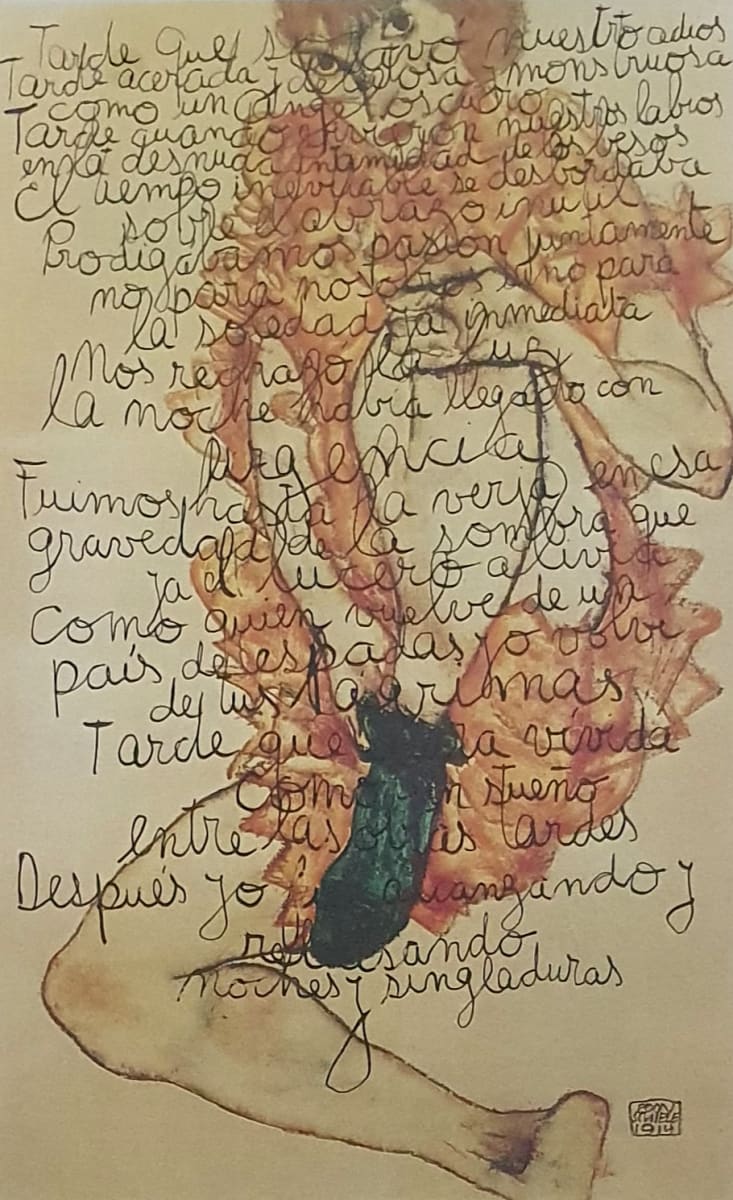 Tarde que socavó nuestro adios
Tarde acerada y deleitosa y monstruosa
como un angel oscuro
Tarde cuando vivieron nuestros labios
en la desnuda intimidad de los besos
El tiempo inevitable se desbordaba
sobre el abrazo inutil
Prodigabamos pasión juntamente
no para nosotros sino para
la soledad ya inmediata
Nos rechazó la luz
la noche había llegado con
urgencia
Fuimos hasta la verja en esa
gravedad de la sombra que
ya el lucero alivia
como quien vuelve de un
país de espadas yo volví
de tus lágrimas
Tarde que dura vívida
como un sueño
entre las otras tardes
Después yo fui alcanzando y
rebasando
noches y singladuras
EGON
SCHIELE
1914